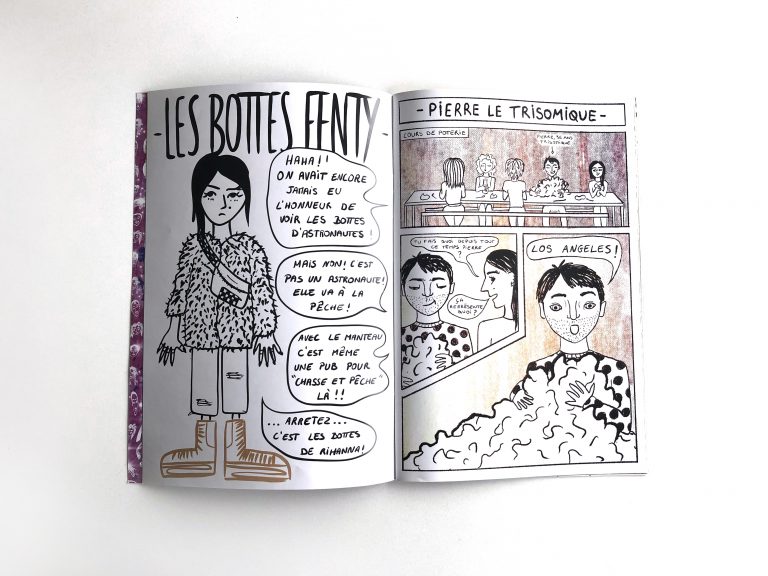 -LES BOTTES FENTY-
HAHA!!
ON AVAIT ENCORE
JAMAIS EU
L'HONNEUR DE
VOIR LES BOTTES
D'ASTRONAUTES !
MAIS NON! C'EST
PAS UN ASTRONAUTE!
ELLE VA À LA
PÊCHE !
AVEC LE MANTEAU
C'EST MÊME
UNE PUB POUR
"CHASSE ET PÊCHE"
LÀ !!
... ARRETEZ...
C'EST LES BOTTES
DE RIHANNA!
- PIERRE LE TRISOMIQUE -
COURS DE POTERIE
PIERRE, 30 ANS
TRISOMIQUE
TU FAIS QUOI DEPUIS TOUT
CE TEMPS PIERRE
?
ÇA
REPRÉSENTE
QUOI ?
LOS ANGELES !